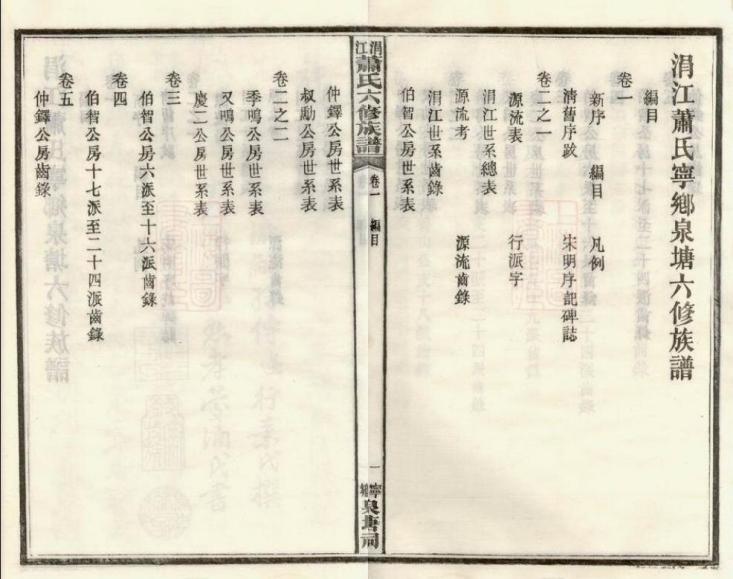 涓江蕭氏寧鄉泉塘六修族譜
編目
卷一
新序 編目 凡例
清舊序跋 宋明序記碑誌
卷二之一
源流表 行派字
涓江世系總表
源流考 源流齒錄
涓江世系齒錄
伯智公房世系表
涓江蕭氏六修族譜 卷一 編目 一 寧鄉泉塘祠
仲鐸公房世系表
叔勳公房世系表
卷二之二
季鳴公房世系表
又鳴公房世系表
慶二公房世系表
卷三
伯智公房六派至十六派齒錄
卷四
伯智公房十七派至二十四派齒錄
卷五
仲鐸公房齒錄